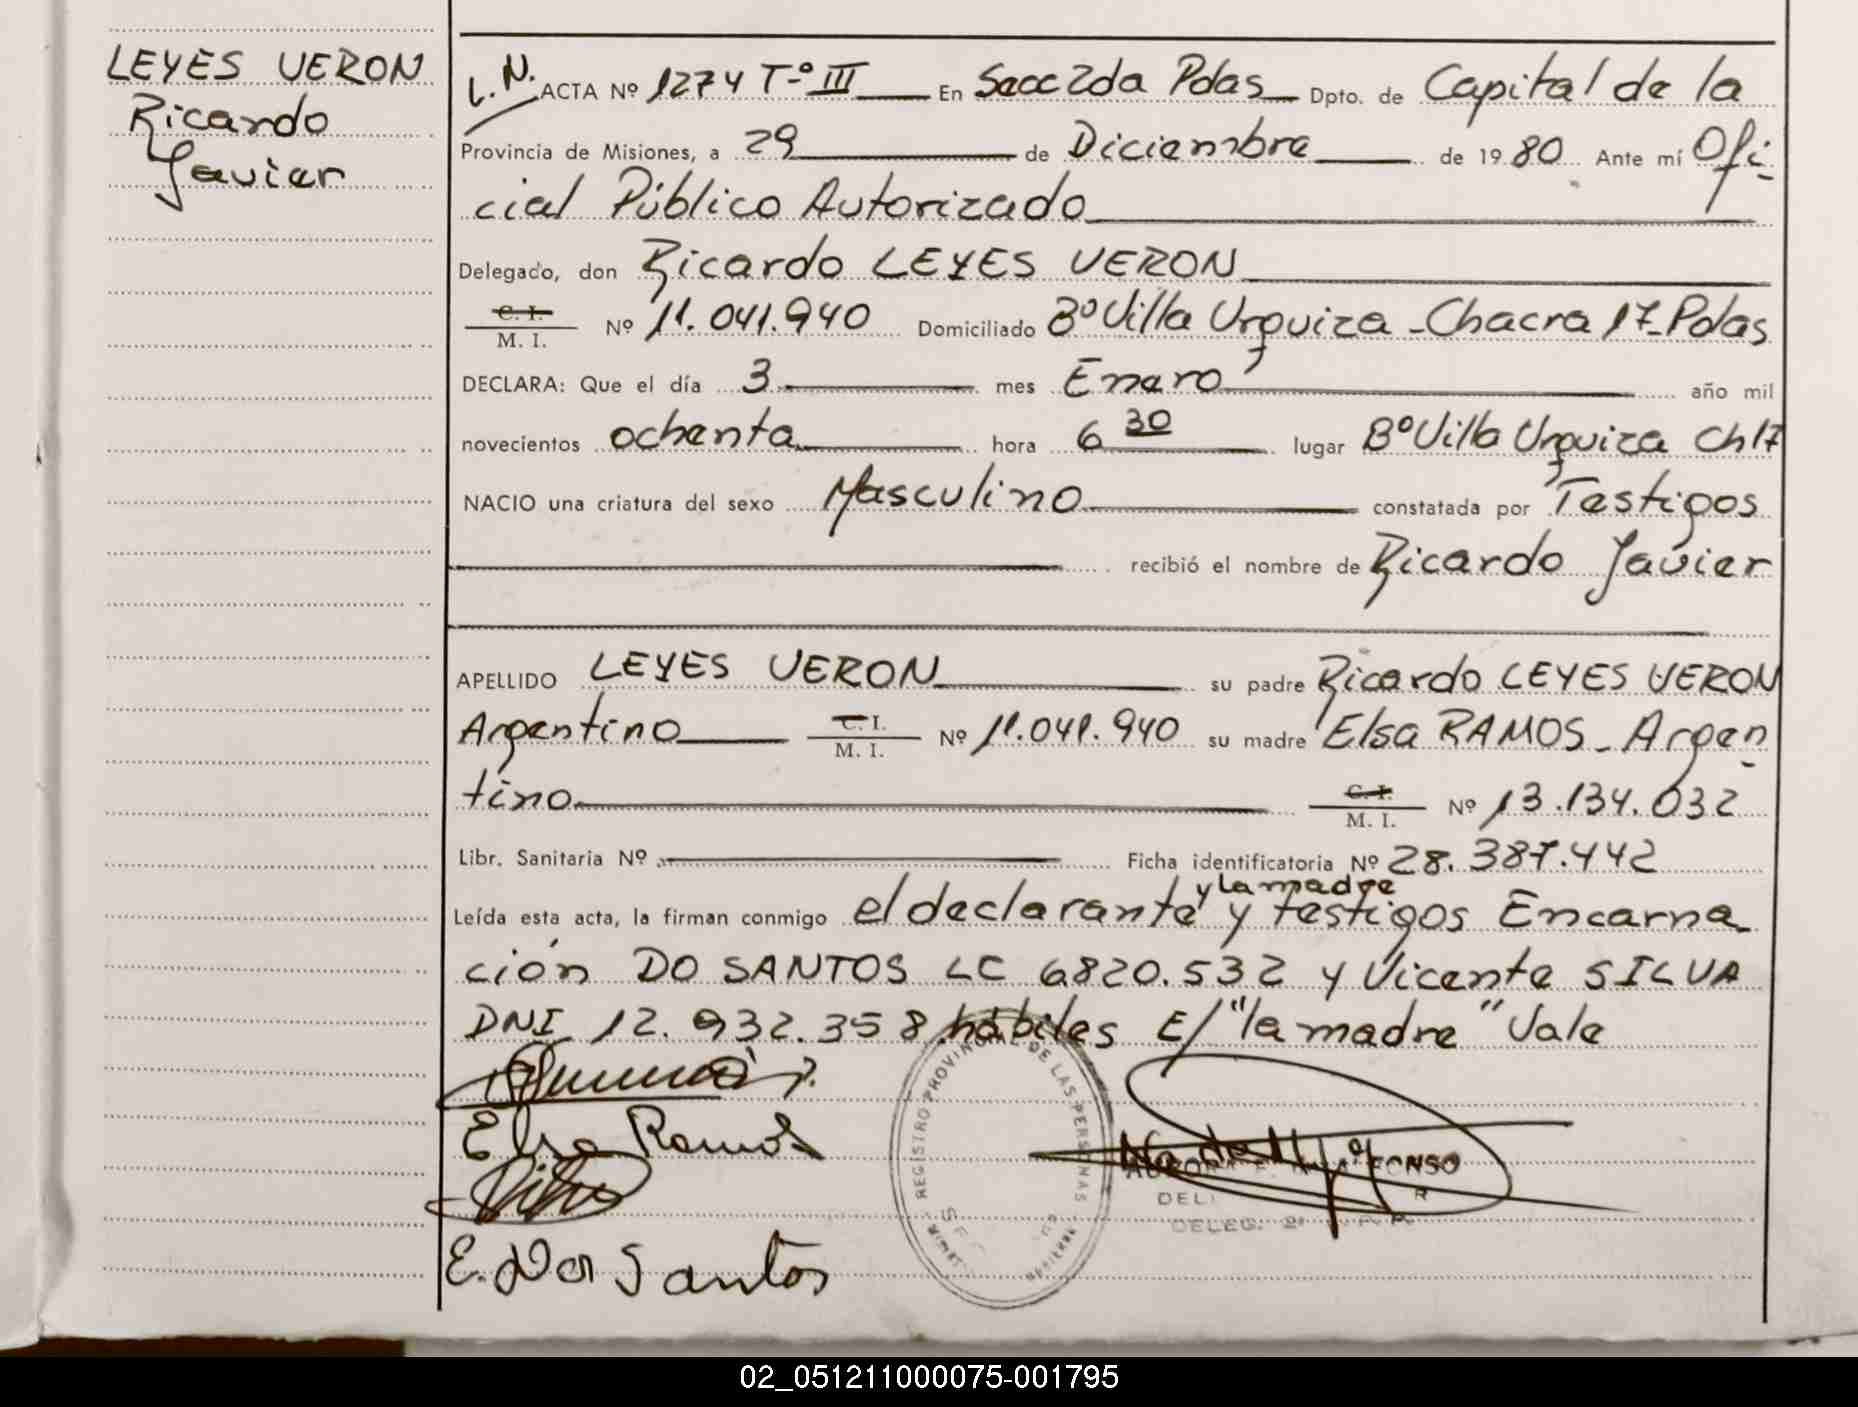 LEYES VERON
Ricardo
Javier
L.N. ACTA Nº 1274 Tº III En Secc 2da Pdas Dpto. de Capital de la
Provincia de Misiones, a 29 de Diciembre de 19 80 Ante mí Ofi-
cial Público Autorizado
Delegado, don Ricardo LEYES VERON
C. I.
M. I. Nº 11.041.940 Domiciliado Bº Villa Urquiza - Chacra 17 - Pdas
DECLARA: Que el día 3 mes Enero año mil
novecientos ochenta hora 6 30 lugar Bº Villa Urquiza Ch 17
NACIO una criatura del sexo Masculino constatada por Testigos
recibió el nombre de Ricardo Javier
APELLIDO LEYES VERON su padre Ricardo LEYES VERON
Argentino C. I.
M. I. Nº 11.041.940 su madre Elsa RAMOS - Argen-
tino C. I.
M. I. Nº 13.134.032
Libr. Sanitaria Nº Ficha identificatoria Nº 28.387.442
y la madre
Leída esta acta, la firman conmigo el declarante y testigos Encarna-
ción DO SANTOS LC 6820.532 y Vicente SILVA
DNI 12.932.358 hábiles E/ "la madre" Vale
Elsa Ramos
E. Do Santos
REGISTRO PROVINCIAL DE LAS PERSONAS
DELEG. 2º
02_051211000075-001795